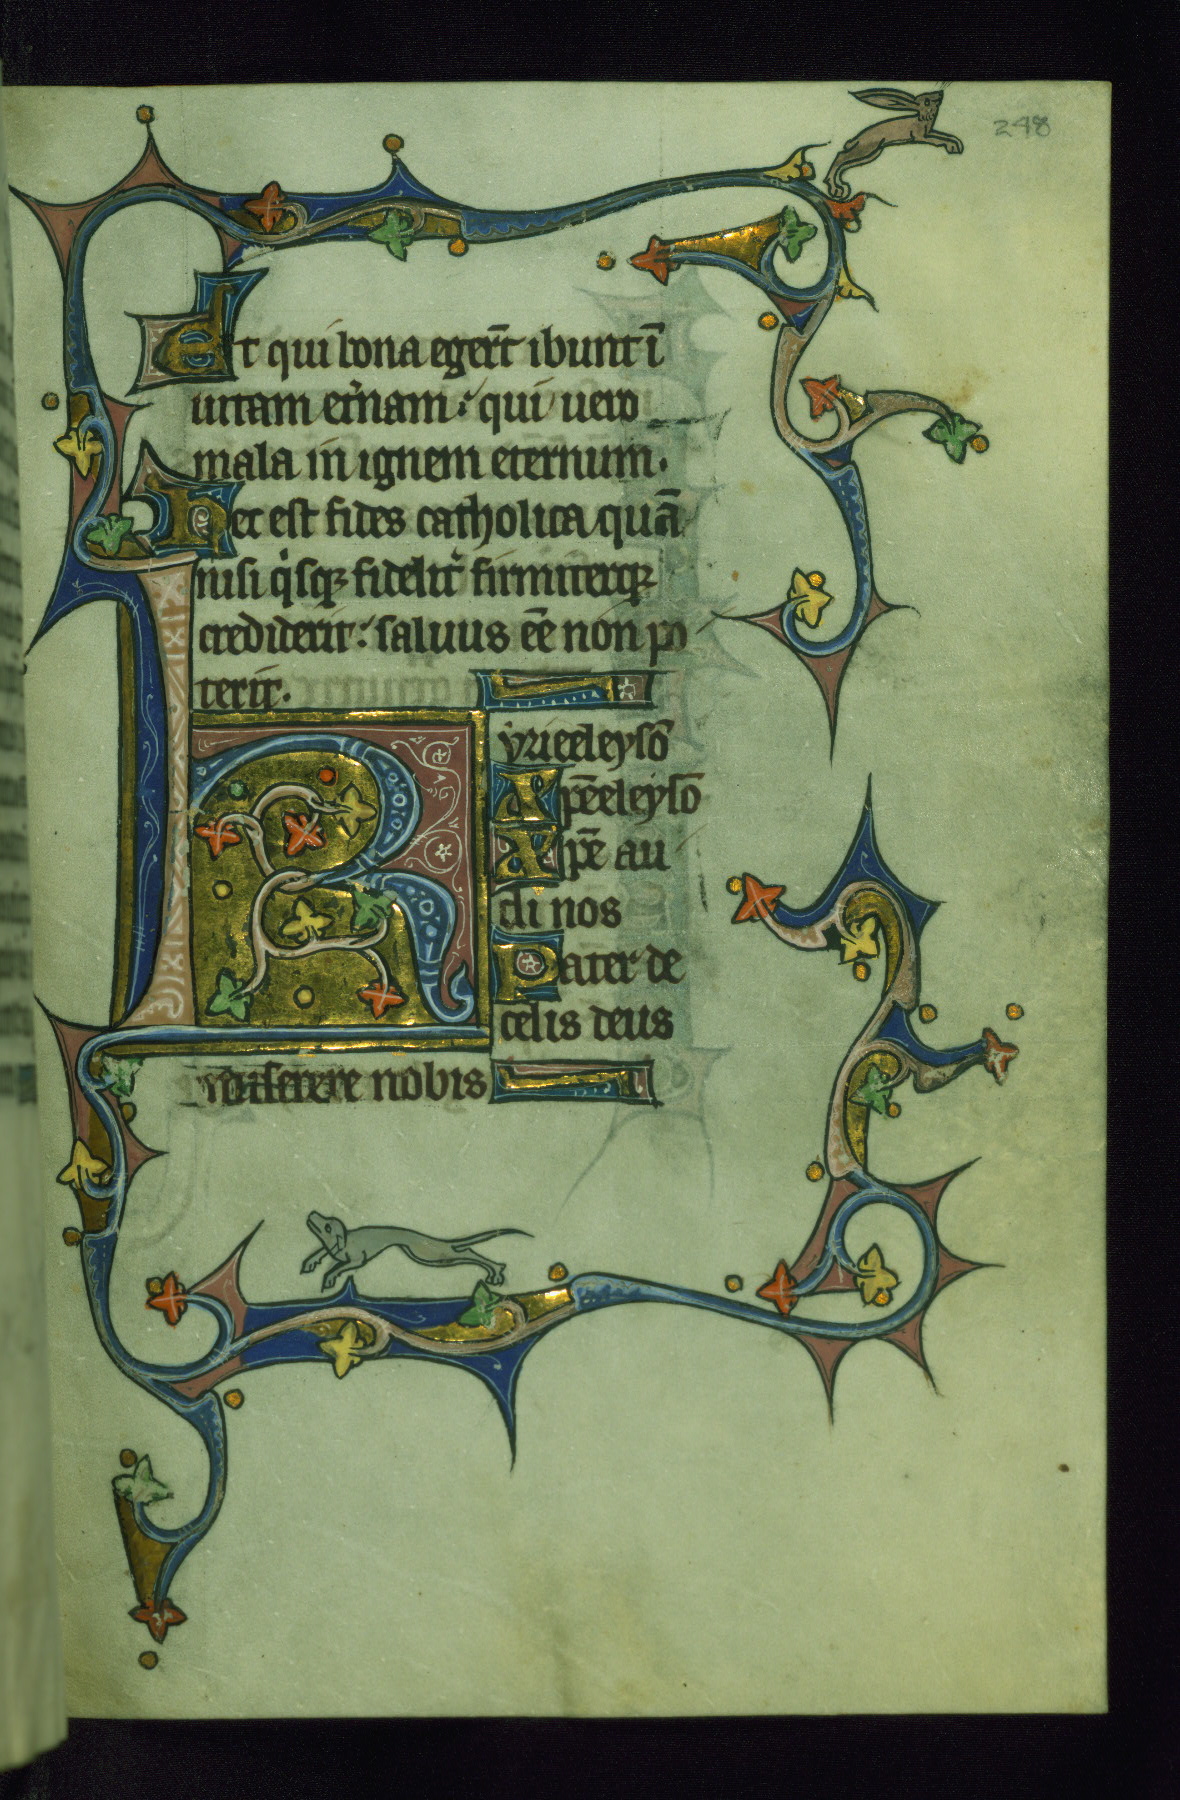 248
Et qui bona eger̄t ibunt ī
uitam et̉nam : qui uero
mala in ignem eternum .
Hec est fides catholica quā
nisi q̉sq̄ fidelit̉ firmiterq̄
crediderit : saluus ēe non po
terit .
Kyrieeleysō
Xp̄eeleysō
Xp̄e au
di nos
Pater de
celis deus
miserere nobis